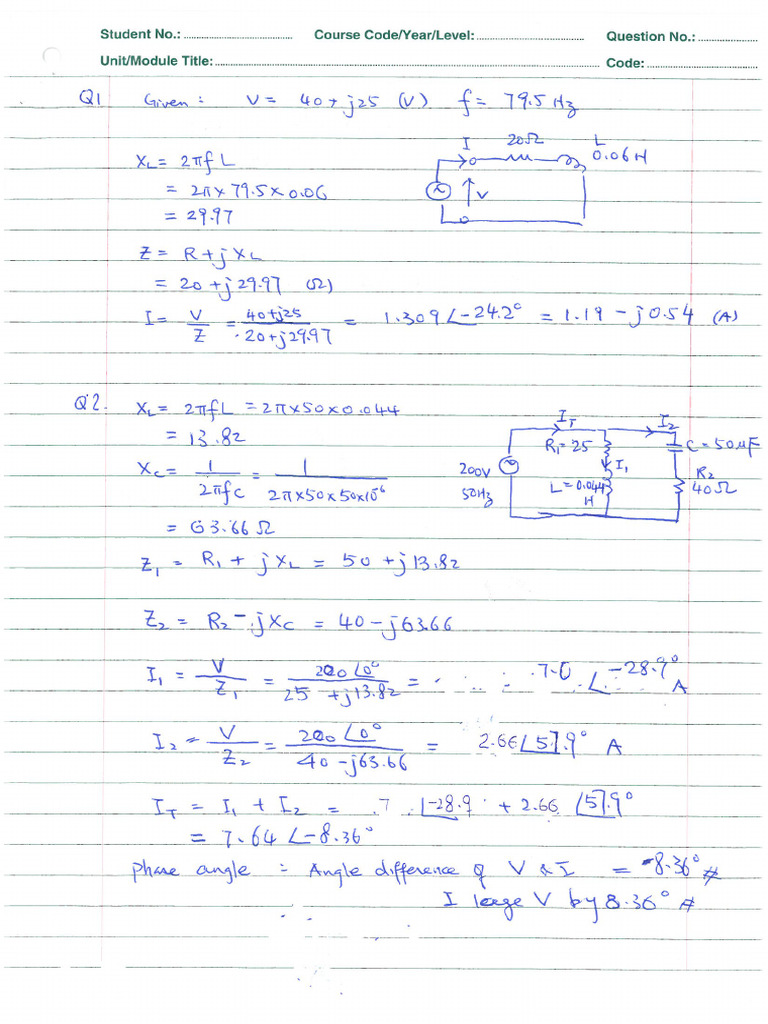 Student No.: Course Code/Year/Level: Question No.:
Unit/Module Title: Code:
Q1 Given: V = 40+j25 (V) f = 79.5 Hz
I 20Ω L
0.06H
V
XL = 2πfL
= 2π×79.5×0.06
= 29.97
Z = R+jXL
= 20+j29.97 (Ω)
I = V/Z = (40+j25)/(20+j29.97) = 1.309∠-24.2° = 1.19-j0.54 (A)
Q2. XL = 2πfL = 2π×50×0.044
= 13.82
XC = 1/(2πfC) = 1/(2π×50×50×10⁻⁶)
= 63.66Ω
IT I2
R1=25 C=50μF
200V I1 R2
50Hz L=0.044 40Ω
H
Z1 = R1 + jXL = 50+j13.82
Z2 = R2 - jXC = 40-j63.66
I1 = V/Z1 = 200∠0°/(25+j13.82) = 7.0∠-28.9° A
I2 = V/Z2 = 200∠0°/(40-j63.66) = 2.66∠57.9° A
IT = I1 + I2 = 7∠-28.9 + 2.66∠57.9°
= 7.64∠-8.36°
phase angle = Angle difference of V & I = -8.36° #
I V by 8.36° #